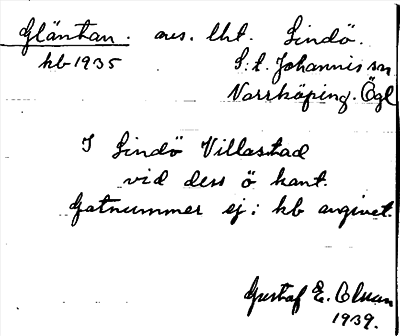 Gläntan. avs. lht. Lindö.
kb 1935 S:t Johannis sn
Norrköping. Ögl
I Lindö Villastad
vid dess ö kant.
Gatnummer ej i kb angivet.
Gustaf E. Olsson
1939.